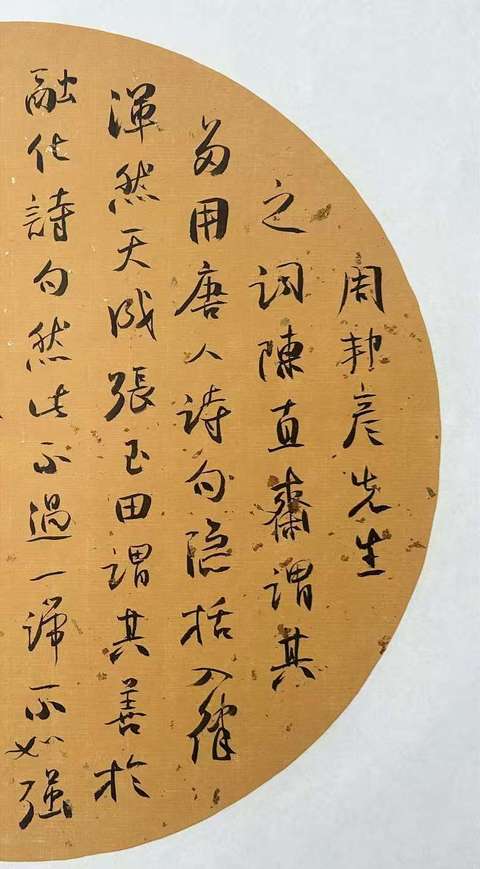 周邦彦先生
之词陳直齋谓其
多用唐人詩句隐括入律
渾然天成張玉田谓其善於
融化詩句然此不過一端不如强